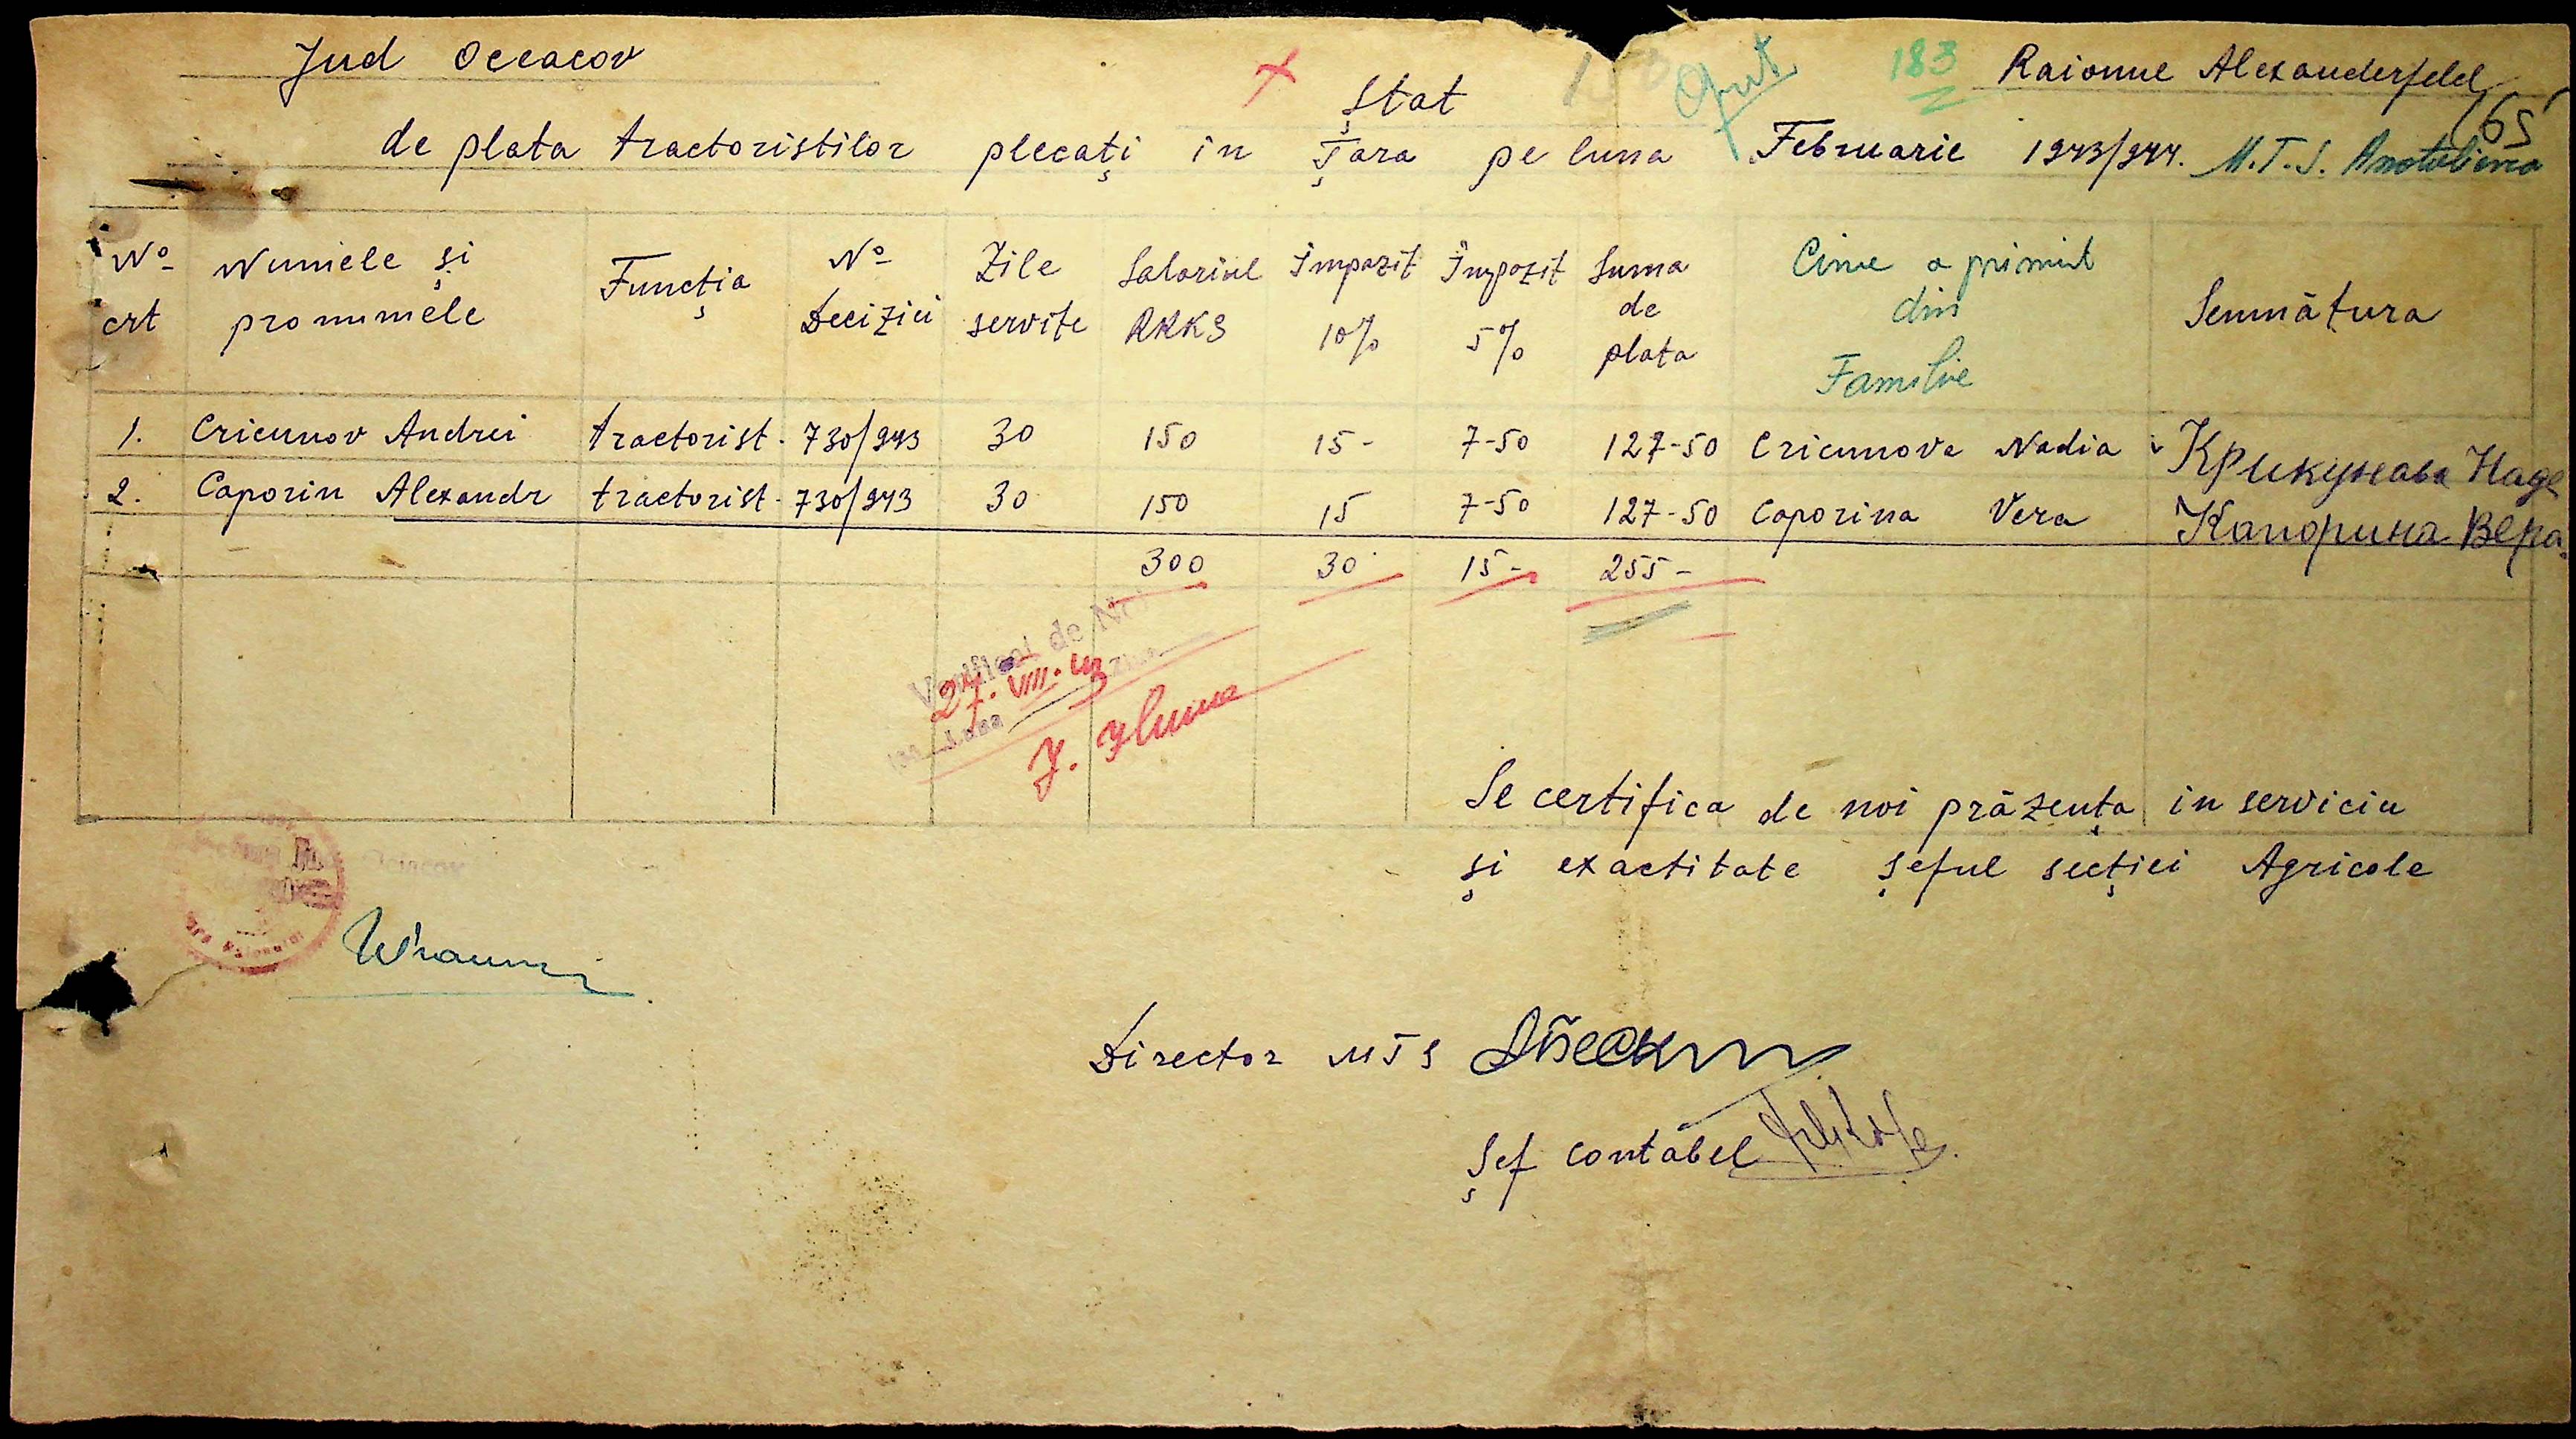 Jud Oceacov
183 Raionul Alexanderfeld
165
Ştat
de plata tractoristilor plecaţi in Ţara pe luna Februarie 1943/944. M.T.S. Anatolievca
No crt
Numele şi pronumele
Funcţia
No Deciziei
Zile servite
Salariul RKKS
Impozit 10%
Impozit 5%
Suma de plata
Cine a primit din Familie
Semnătura
1. Cricunov Andrei tractorist 730/943 30 150 15- 7-50 127-50 Cricunova Nadia Крикунава Наде
2. Caporin Alexandr tractorist 730/943 30 150 15 7-50 127-50 Caporina Vera Капорина Вера
300 30 15- 255-
Verificat de Nr
27.VIII.43
Se certifica de noi prăzenţa in serviciu
şi exactitate şeful secţiei Agricole
Director MTS
Şef contăbel